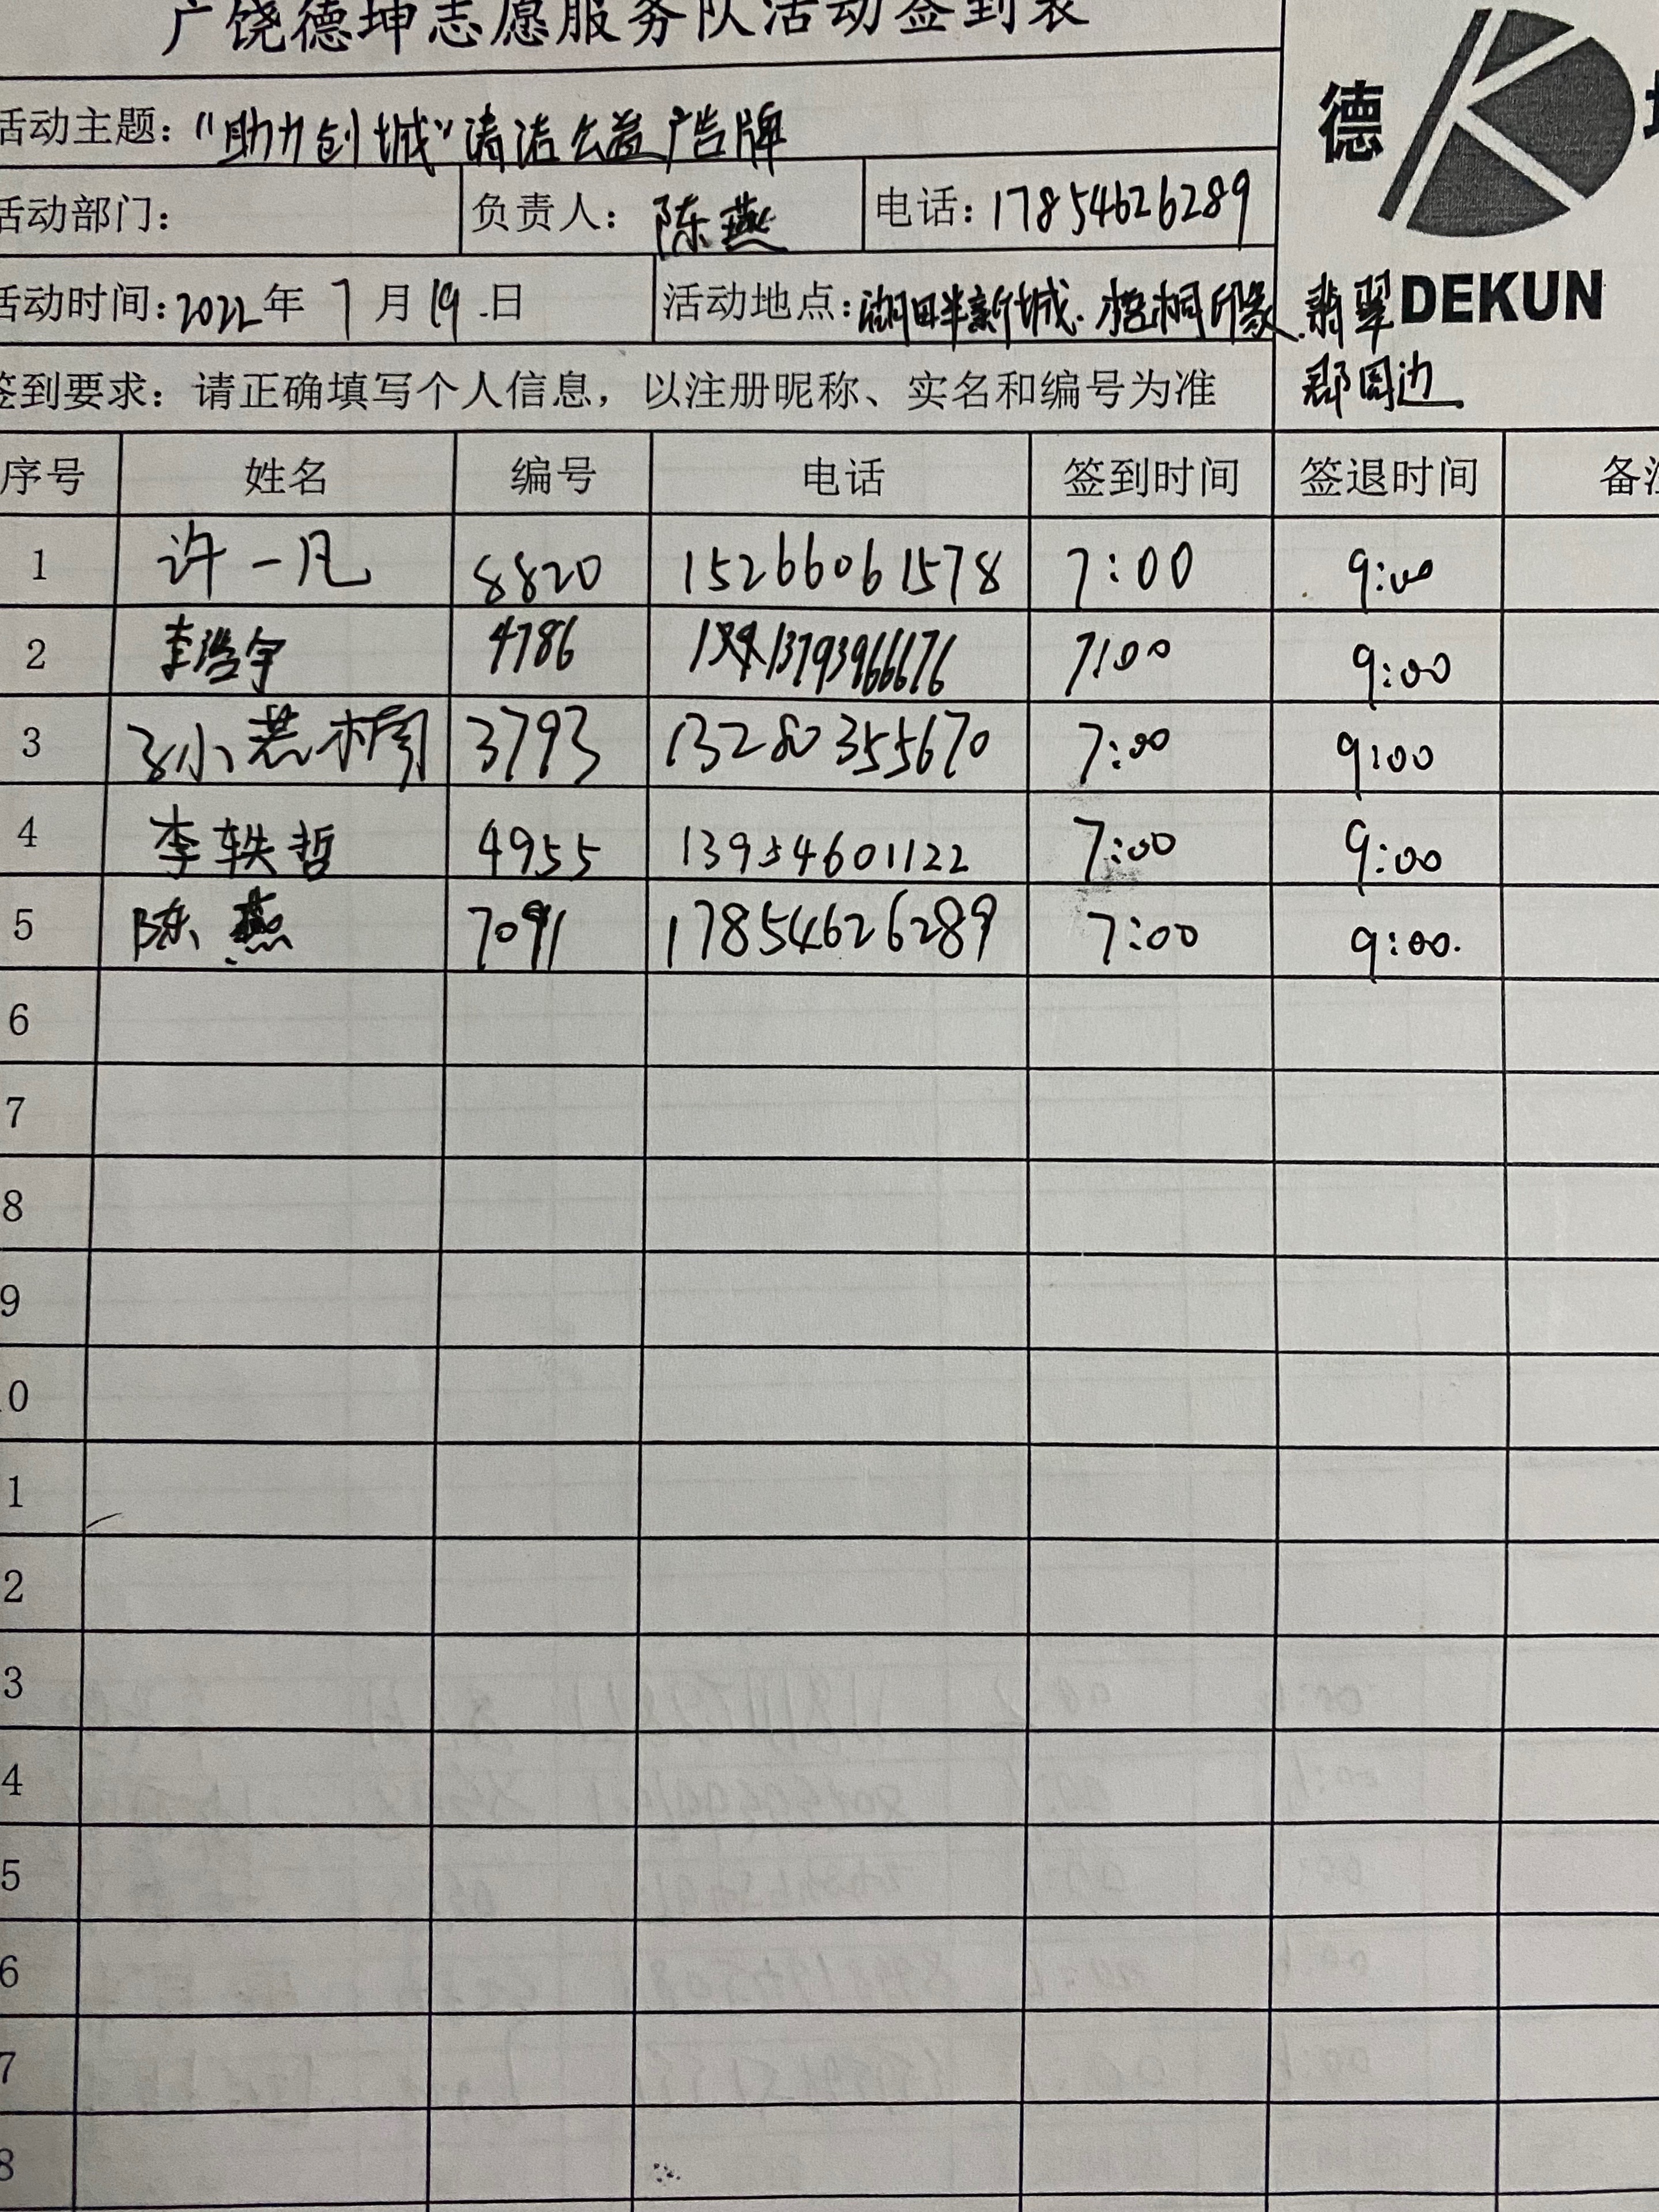 广饶德坤志愿服务队活动签到表
德
活动主题："助力创城"清洁公益广告牌
活动部门： 负责人：陈燕 电话：17854626289
活动时间：2022年7月19日 活动地点：湖田半新城.梧桐印象.翡翠
DEKUN
郡周边
签到要求：请正确填写个人信息，以注册昵称、实名和编号为准
序号 姓名 编号 电话 签到时间 签退时间 备注
1 许一凡 8820 15266061578 7:00 9:00
2 李浩宇 4786 13793966676 7:00 9:00
3 孙若桐 3793 13280355670 7:00 9:00
4 李轶哲 4955 13954601122 7:00 9:00
5 陈燕 7091 17854626289 7:00 9:00.
6
7
8
9
0
1
2
3
4
5
6
7
8